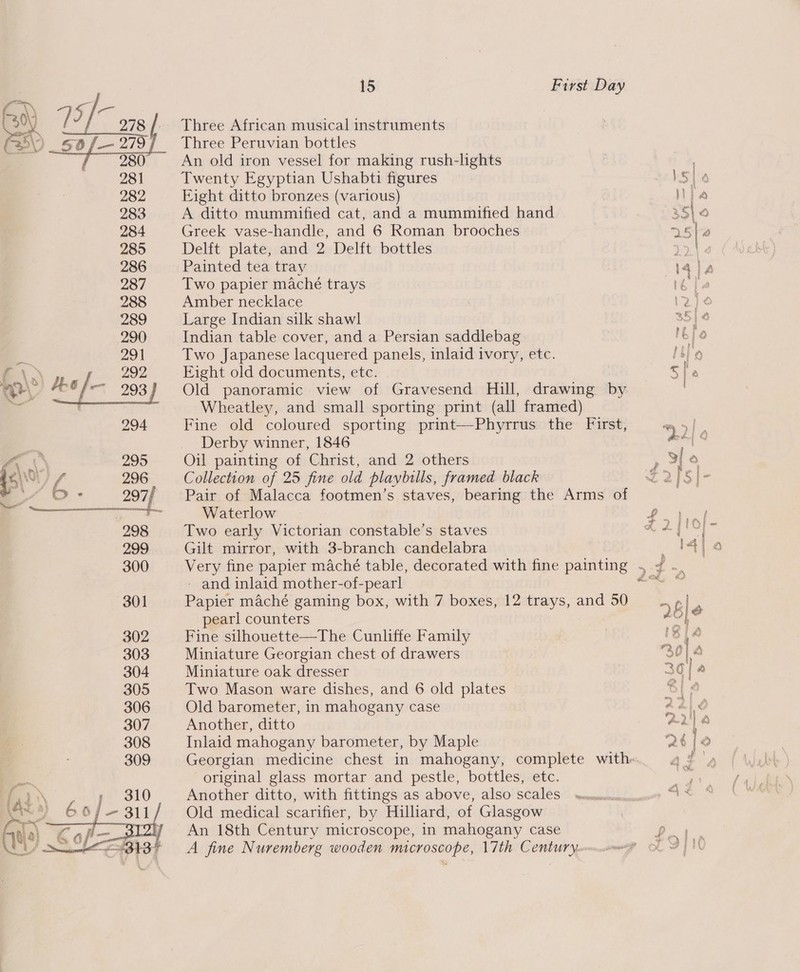 15 First Day
(30) 75/- 278 Three African musical instruments
(25) 50/- 279 Three Peruvian bottles
280 An old iron vessel for making rush-lights
281 Twenty Egyptian Ushabti figures 15/6
282 Eight ditto bronzes (various)
283 A ditto mummified cat, and a mummified hand 35/0
284 Greek vase-handle, and 6 Roman brooches 25/0
285 Delft plate, and 2 Delft bottles
286 Painted tea tray 14/0
287 Two papier maché trays 16/0
288 Amber necklace 12/0
289 Large Indian silk shawl 35/0
290 Indian table cover, and a Persian saddlebag 16/0
291 Two Japanese lacquered panels, inlaid ivory, etc.
292 Eight old documents, etc. 5/0
293 Old panoramic view of Gravesend Hill, drawing by
Wheatley, and small sporting print (all framed)
294 Fine old coloured sporting print—Phyrrus the First,
Derby winner, 1846
295 Oil painting of Christ, and 2 others
296 Collection of 25 fine old playbills, framed black £2/5/-
297 Pair of Malacca footmen's staves, bearing the Arms of
Waterlow
298 Two early Victorian constable's staves £2/10/-
299 Gilt mirror, with 3-branch candelabra 14/0
300 Very fine papier maché table, decorated with fine painting
and inlaid mother-of-pearl
301 Papier maché gaming box, with 7 boxes, 12 trays, and 50
pearl counters
302 Fine silhouette—The Cunliffe Family 18/0
303 Miniature Georgian chest of drawers 30/0
304 Miniature oak dresser 30/0
305 Two Mason ware dishes, and 6 old plates
306 Old barometer, in mahogany case 22/0
307 Another, ditto 22/0
308 Inlaid mahogany barometer, by Maple 26/0
309 Georgian medicine chest in mahogany, complete with
original glass mortar and pestle, bottles, etc.
310 Another ditto, with fittings as above, also scales
60/- 311 Old medical scarifier, by Hilliard, of Glasgow
60/- 312 An 18th Century microscope, in mahogany case
313 A fine Nuremberg wooden microscope, 17th Century £9/10